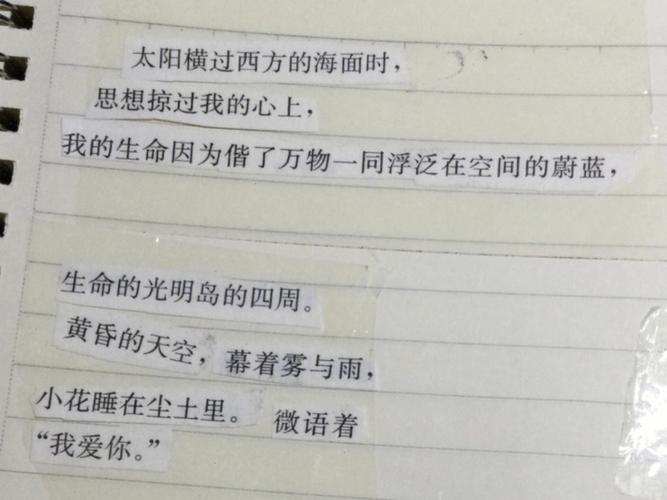 太阳横过西方的海面时，
思想掠过我的心上，
我的生命因为偕了万物一同浮泛在空间的蔚蓝，
生命的光明岛的四周。
黄昏的天空，幕着雾与雨，
小花睡在尘土里。 微语着
“我爱你。”